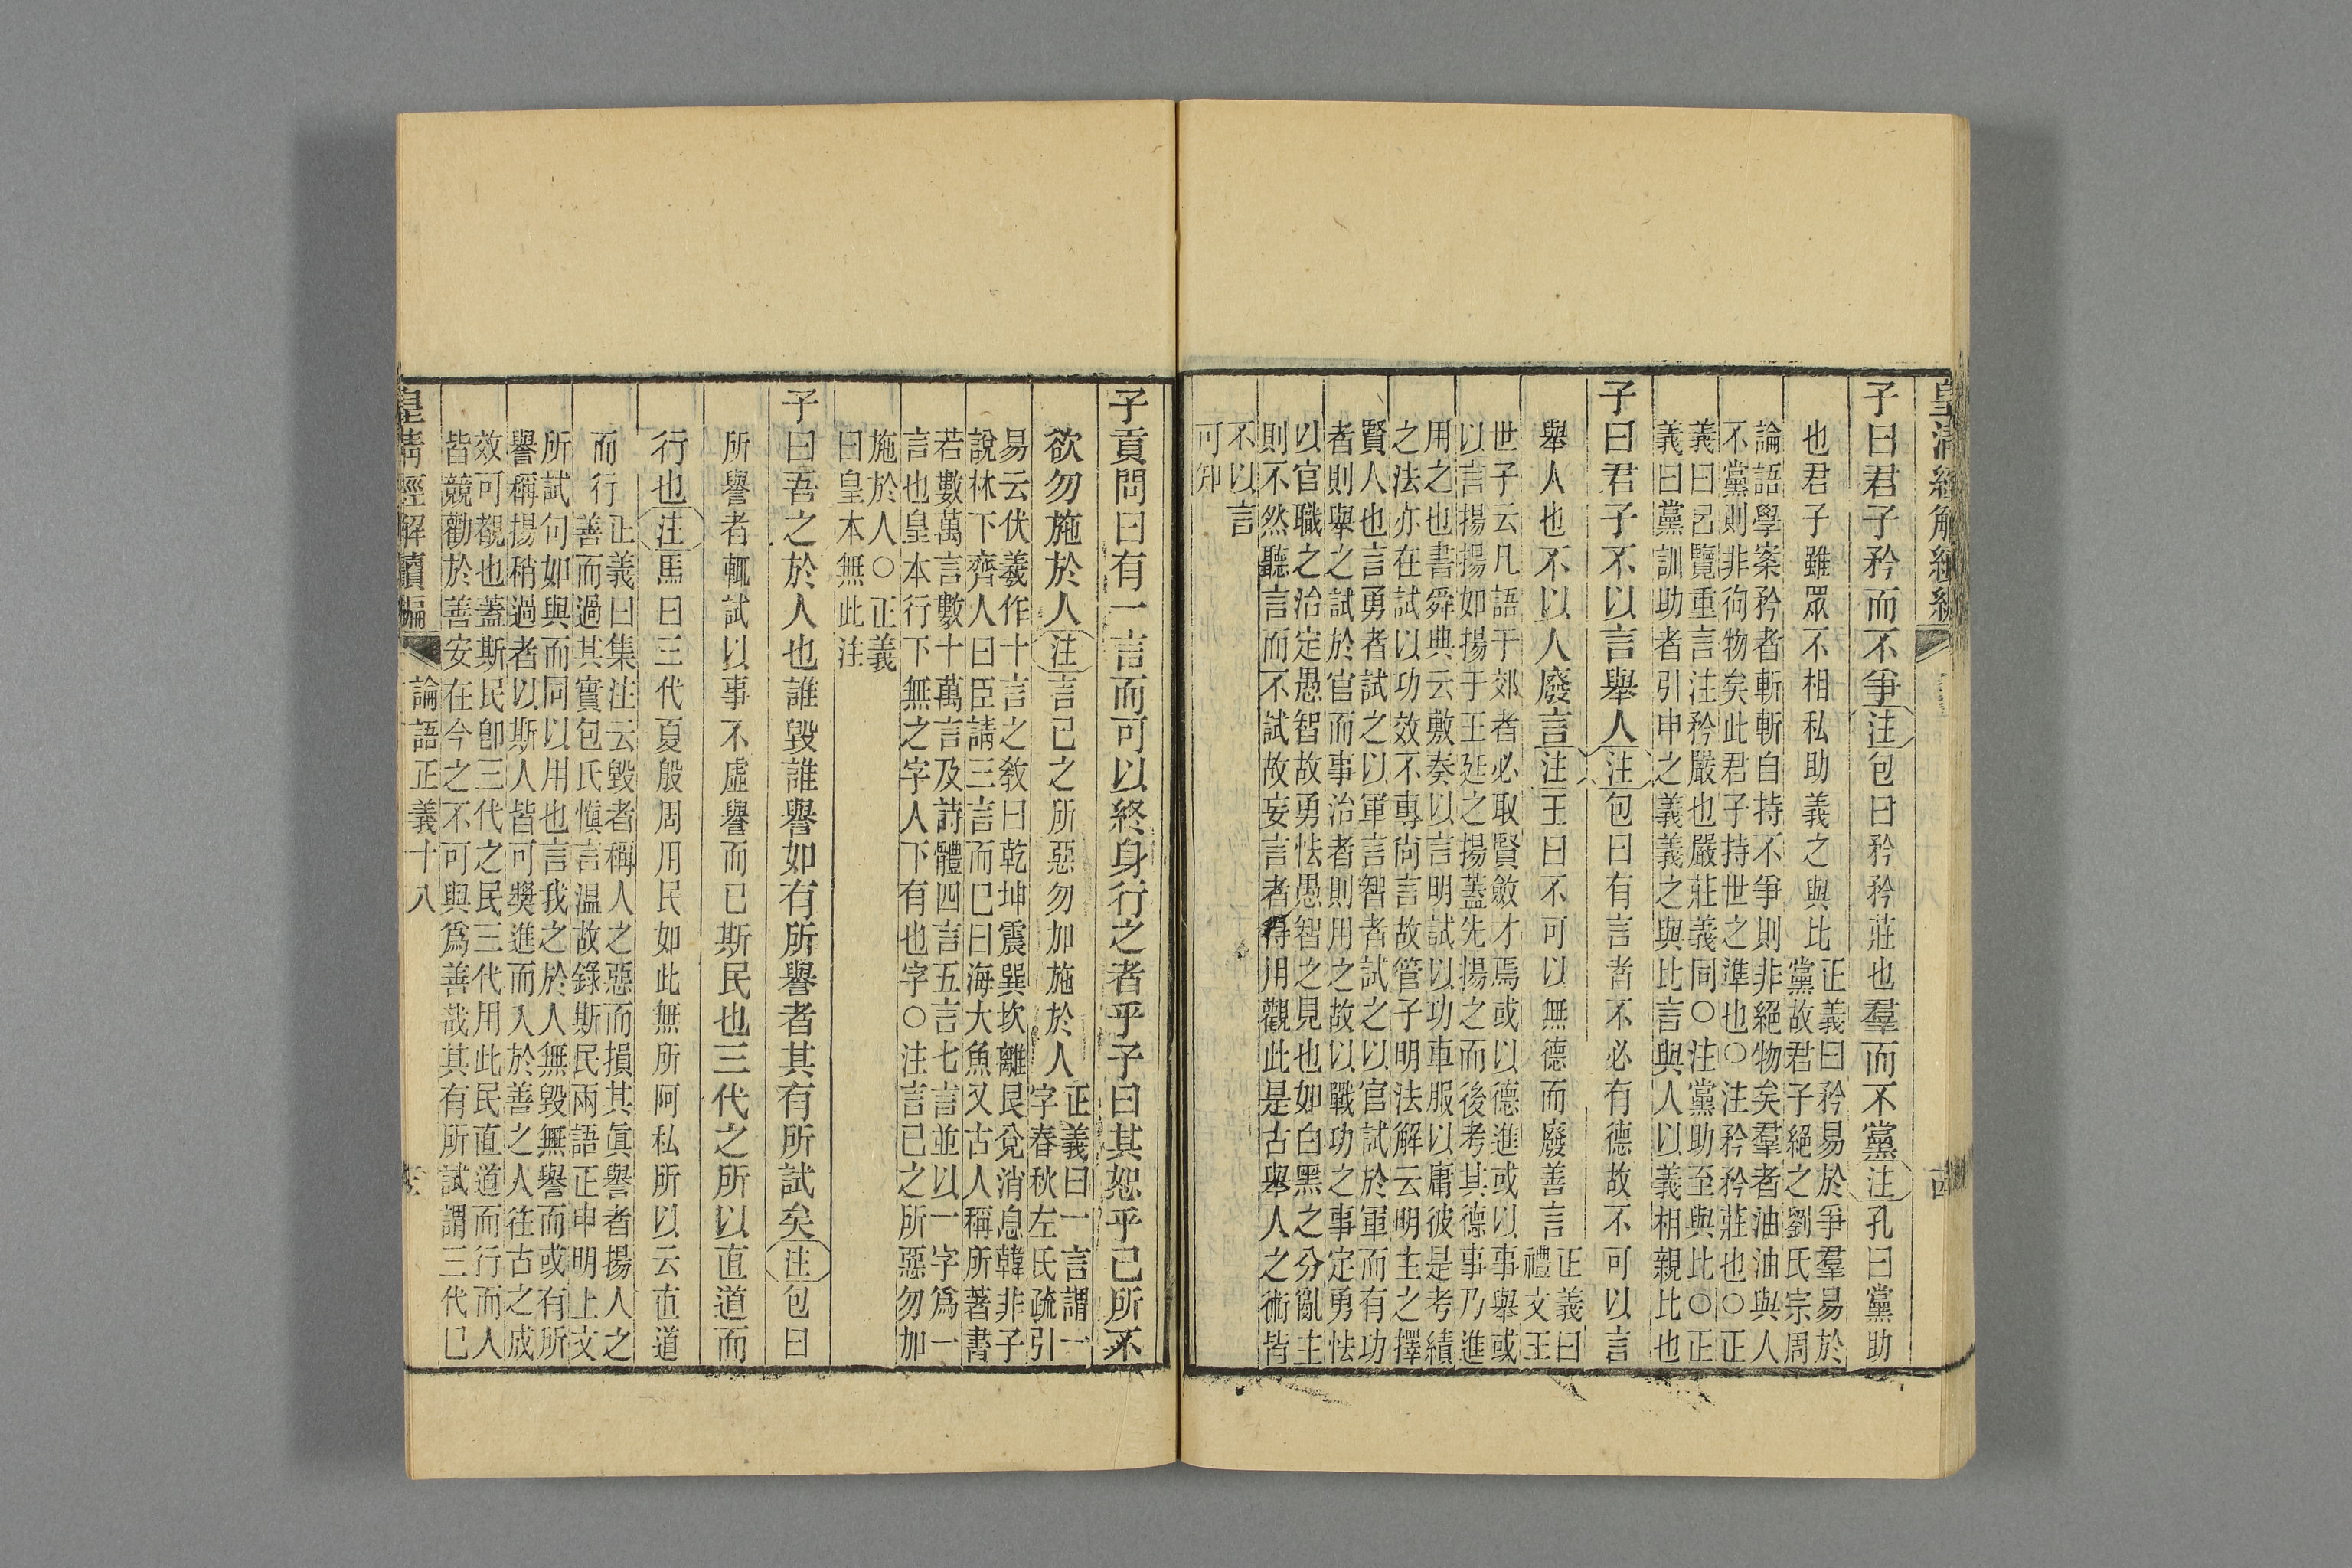 皇清經解續編
子曰君子矜而不爭注包曰矜矜莊也羣而不黨注孔曰黨助
也君子雖眾不相私助義之與比
正義曰矜易於爭羣易於
黨故君子絕之劉氏宗周
論語學案矜者斬斬自持不爭則非絕物矣羣者油油與人
不黨則非徇物矣此君子持世之準也○注矜矜莊也○正
義曰呂覽重言注矜嚴也嚴莊義同○注黨助至與比○正
義曰黨訓助者引申之義義之與比言與人以義相親比也
子曰君子不以言舉人注包曰有言者不必有德故不可以言
舉人也不以人廢言注王曰不可以無德而廢善言
正義曰
禮文王
世子云凡語于郊者必取賢斂才焉或以德進或以事舉或
以言揚揚如揚于王廷之揚蓋先揚之而後考其德事乃進
用之也書舜典云敷奏以言明試以功車服以庸彼是考績
之法亦在試以功效不專尙言故管子明法解云明主之擇
賢人也言勇者試之以軍言智者試之以官試於軍而有功
者則舉之試於官而事治者則用之故以戰功之事定勇怯
以官職之治定愚智故勇怯愚智之見也如白黑之分亂主
則不然聽言而不試故妄言者得用觀此是古舉人之術皆
不以言
可知
子貢問曰有一言而可以終身行之者乎子曰其恕乎己所不
欲勿施於人注言已之所惡勿加施於人
正義曰一言謂一
字春秋左氏疏引
易云伏羲作十言之敎曰乾坤震巽坎離艮兌消息韓非子
說林下齊人曰臣請三言而已曰海大魚又古人稱所著書
若數萬言數十萬言及詩體四言五言七言並以一字爲一
言也皇本行下無之字人下有也字○注言已之所惡勿加
施於人○正義
曰皇本無此注
子曰吾之於人也誰毀誰譽如有所譽者其有所試矣注包曰
所譽者輒試以事不虛譽而已斯民也三代之所以直道而
行也注馬曰三代夏殷周用民如此無所阿私所以云直道
而行
正義曰集注云毀者稱人之惡而損其眞譽者揚人之
善而過其實包氏愼言温故錄斯民兩語正申明上文
所試句如與而同以用也言我之於人無毀無譽而或有所
譽稱揚稍過者以斯人皆可獎進而入於善之人往古之成
效可覩也蓋斯民卽三代之民三代用此民直道而行而人
皆競勸於善安在今之不可與爲善哉其有所試謂三代已
皇清經解續編
論語正義十八